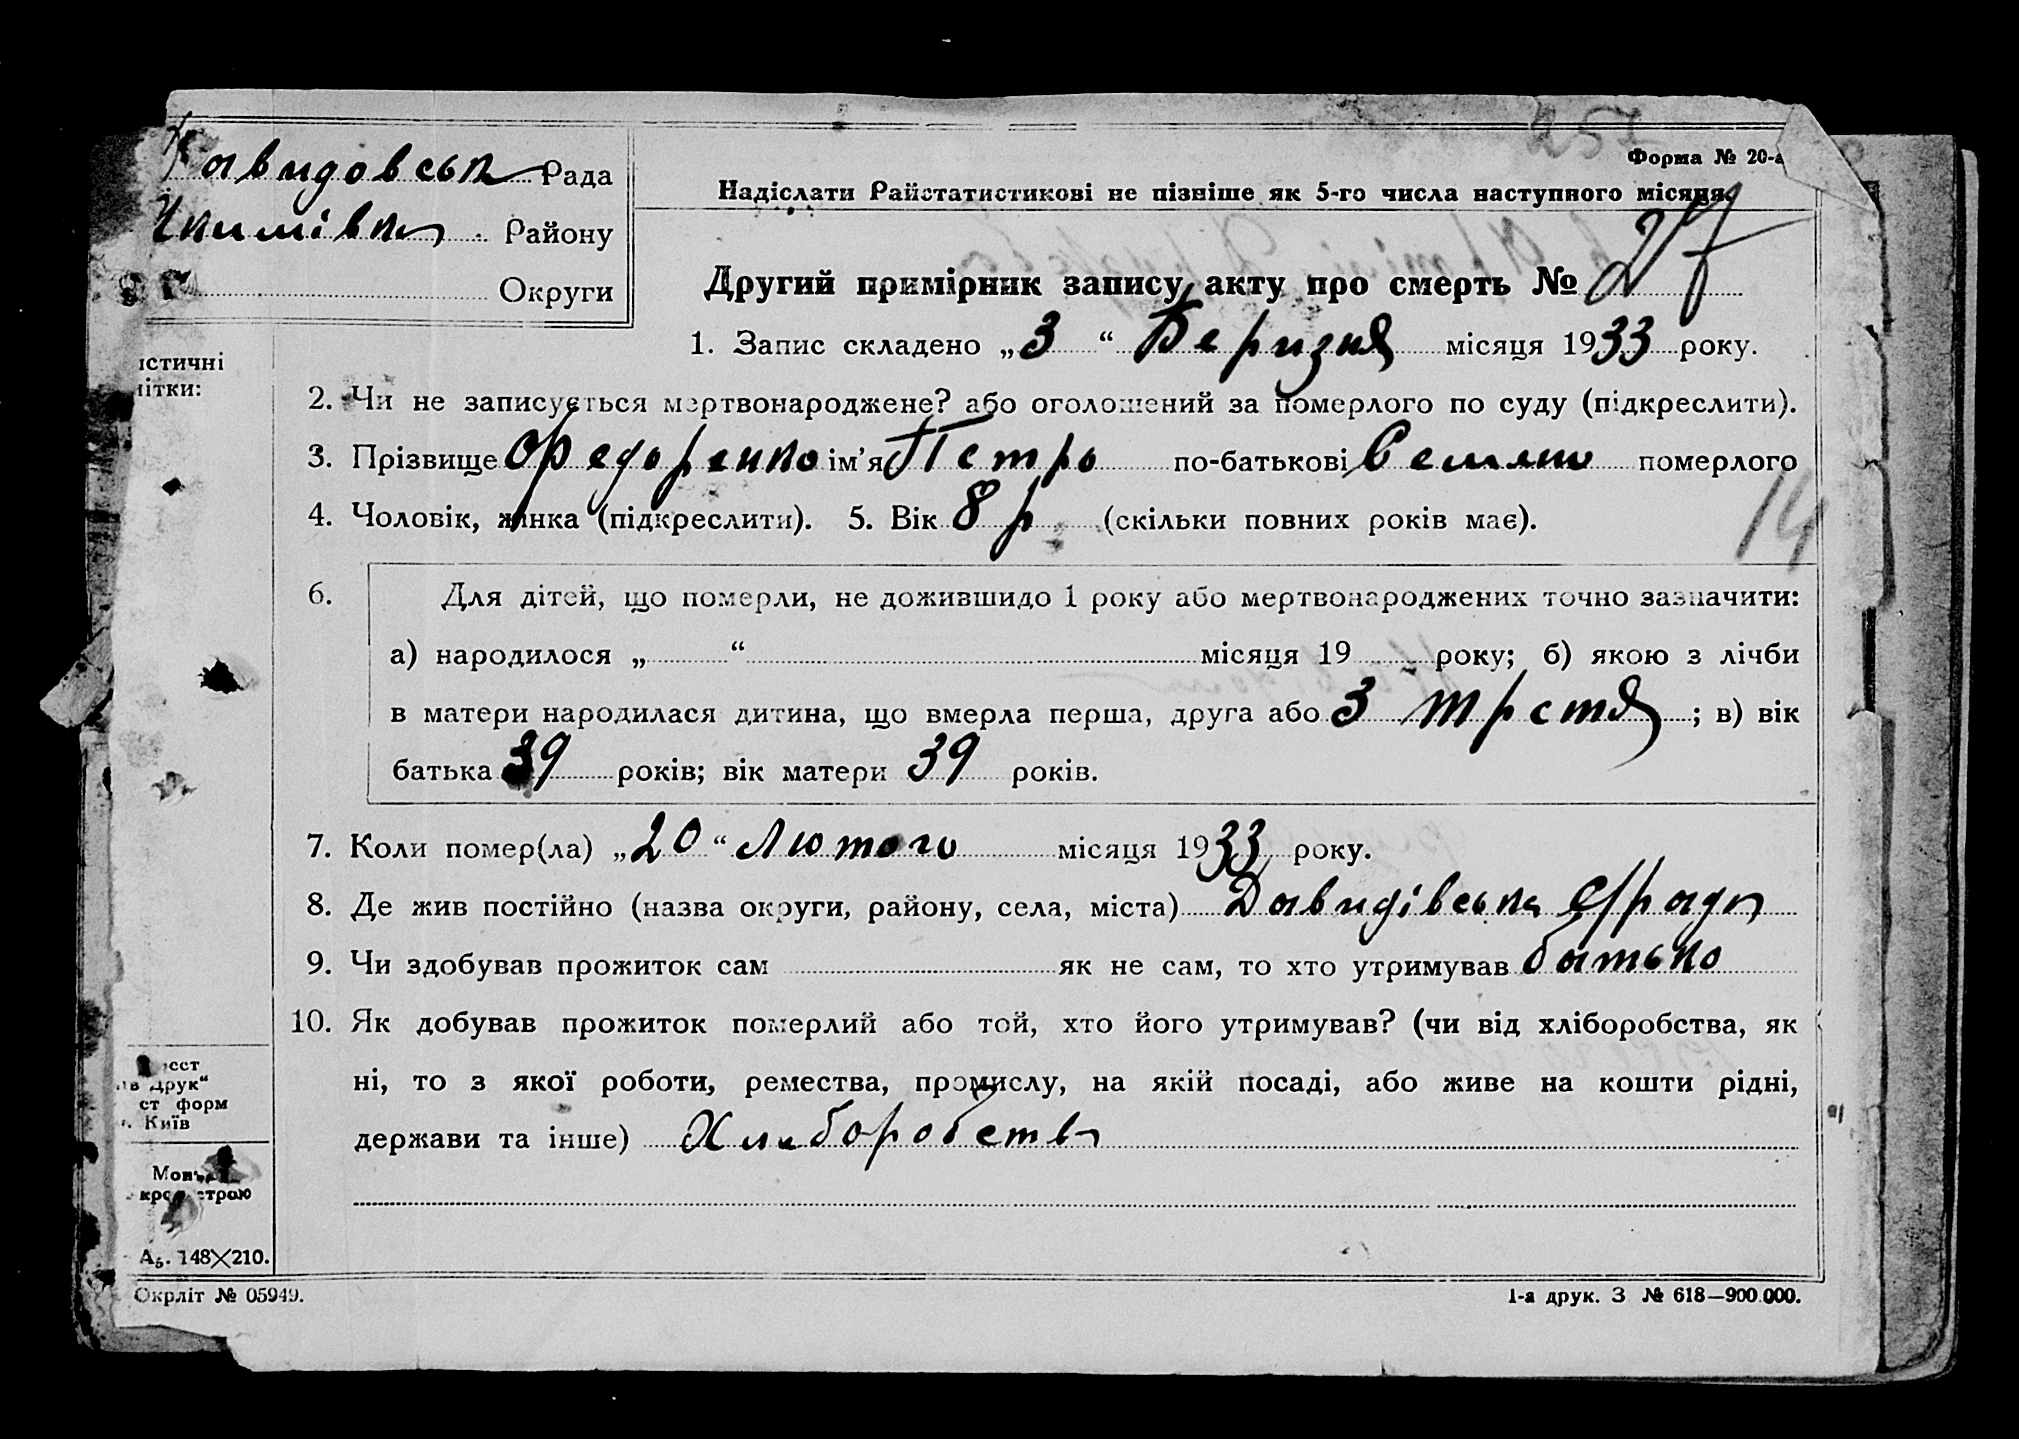 Форма № 20-а
Давидовськ Рада
Надіслати Райстатистикові не пізніше як 5-го числа наступного місяця.
Якимівки Району
Округи
Другий примірник запису акту про смерть № 27
1. Запис складено „3“ Березня місяця 1933 року.
2. Чи не записується мертвонароджене? або оголошений за померлого по суду (підкреслити).
3. Прізвище Федоренко ім’я Петро по-батькові Семено померлого
4. Чоловік, жінка (підкреслити). 5. Вік 8 р (скільки повних років має).
14
6. Для дітей, що померли, не дожившидо 1 року або мертвонароджених точно зазначити:
а) народилося „ “ місяця 19 року; б) якою з лічби
в матери народилася дитина, що вмерла перша, друга або 3 третя; в) вік
батька 39 років; вік матери 39 років.
7. Коли помер(ла) „20“ Лютого місяця 1933 року.
8. Де жив постійно (назва округи, району, села, міста) Давидівська с/рада
9. Чи здобував прожиток сам як не сам, то хто утримував батько
10. Як добував прожиток померлий або той, хто його утримував? (чи від хліборобства, як
ні, то з якої роботи, ремества, промислу, на якій посаді, або живе на кошти рідні,
держави та інше) Хлиборобств
істичні
ітки:
Друк“
ст форм
Київ
А5. 148×210.
Окрліт № 05949.
1-а друк. З № 618—900.000.